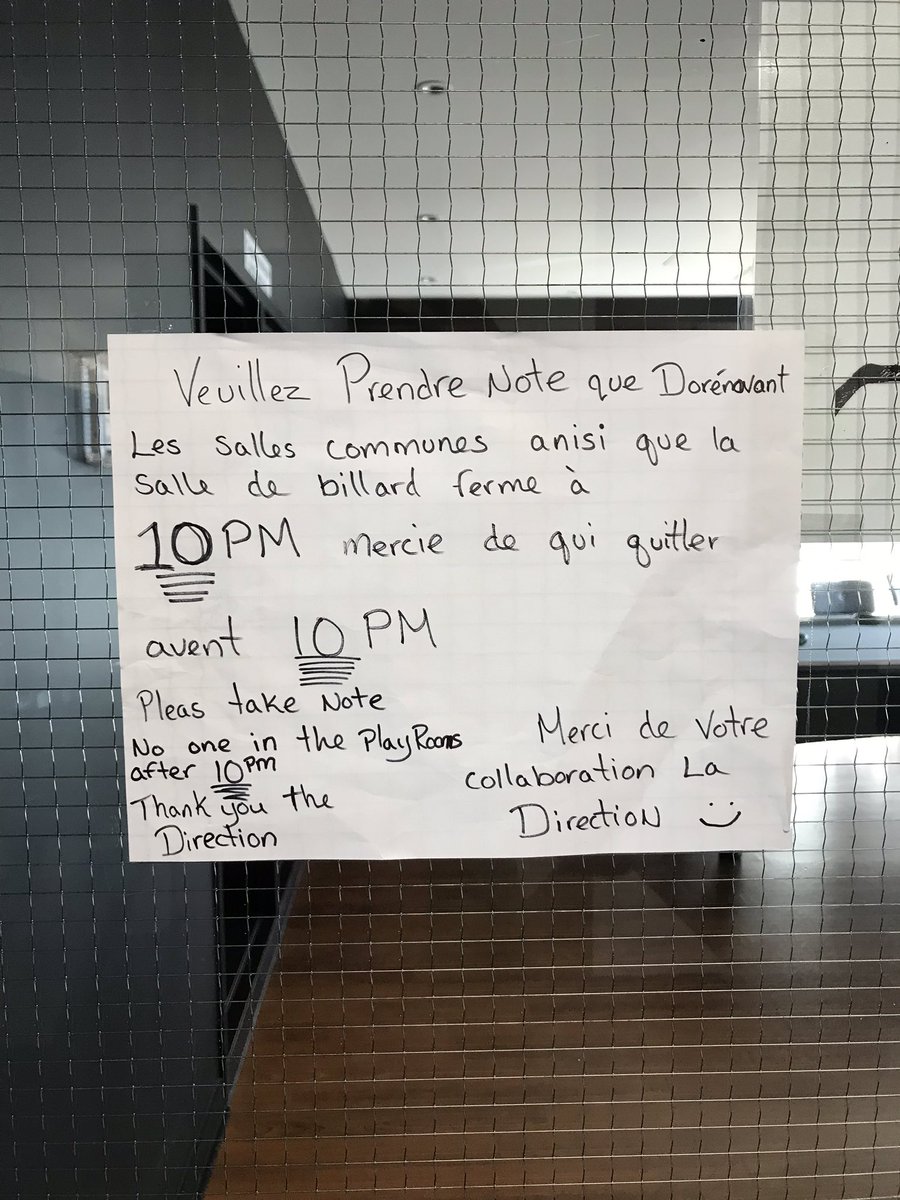 Veuillez Prendre Note que Dorénavant
Les salles communes anisi que la
Salle de billard ferme à
10 PM mercie de qui quitler
avent 10 PM
Pleas take Note
No one in the PlayRooms
after 10pm
Thank you the
Direction
Merci de Votre
collaboration La
Direction